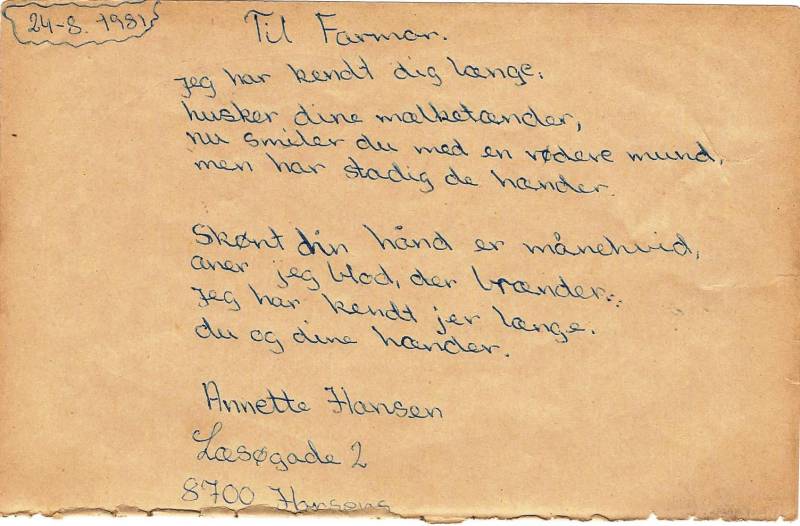 24-8. 1981
Til Farmor.
Jeg har kendt dig længe;
husker dine mælketænder,
nu smiler du med en rødere mund,
men har stadig de hænder.
Skønt din hånd er månehvid,
aner jeg blod, der brænder.
Jeg har kendt jer længe.
du og dine hænder.
Annette Hansen
Læsøgade 2
8700 Horsens